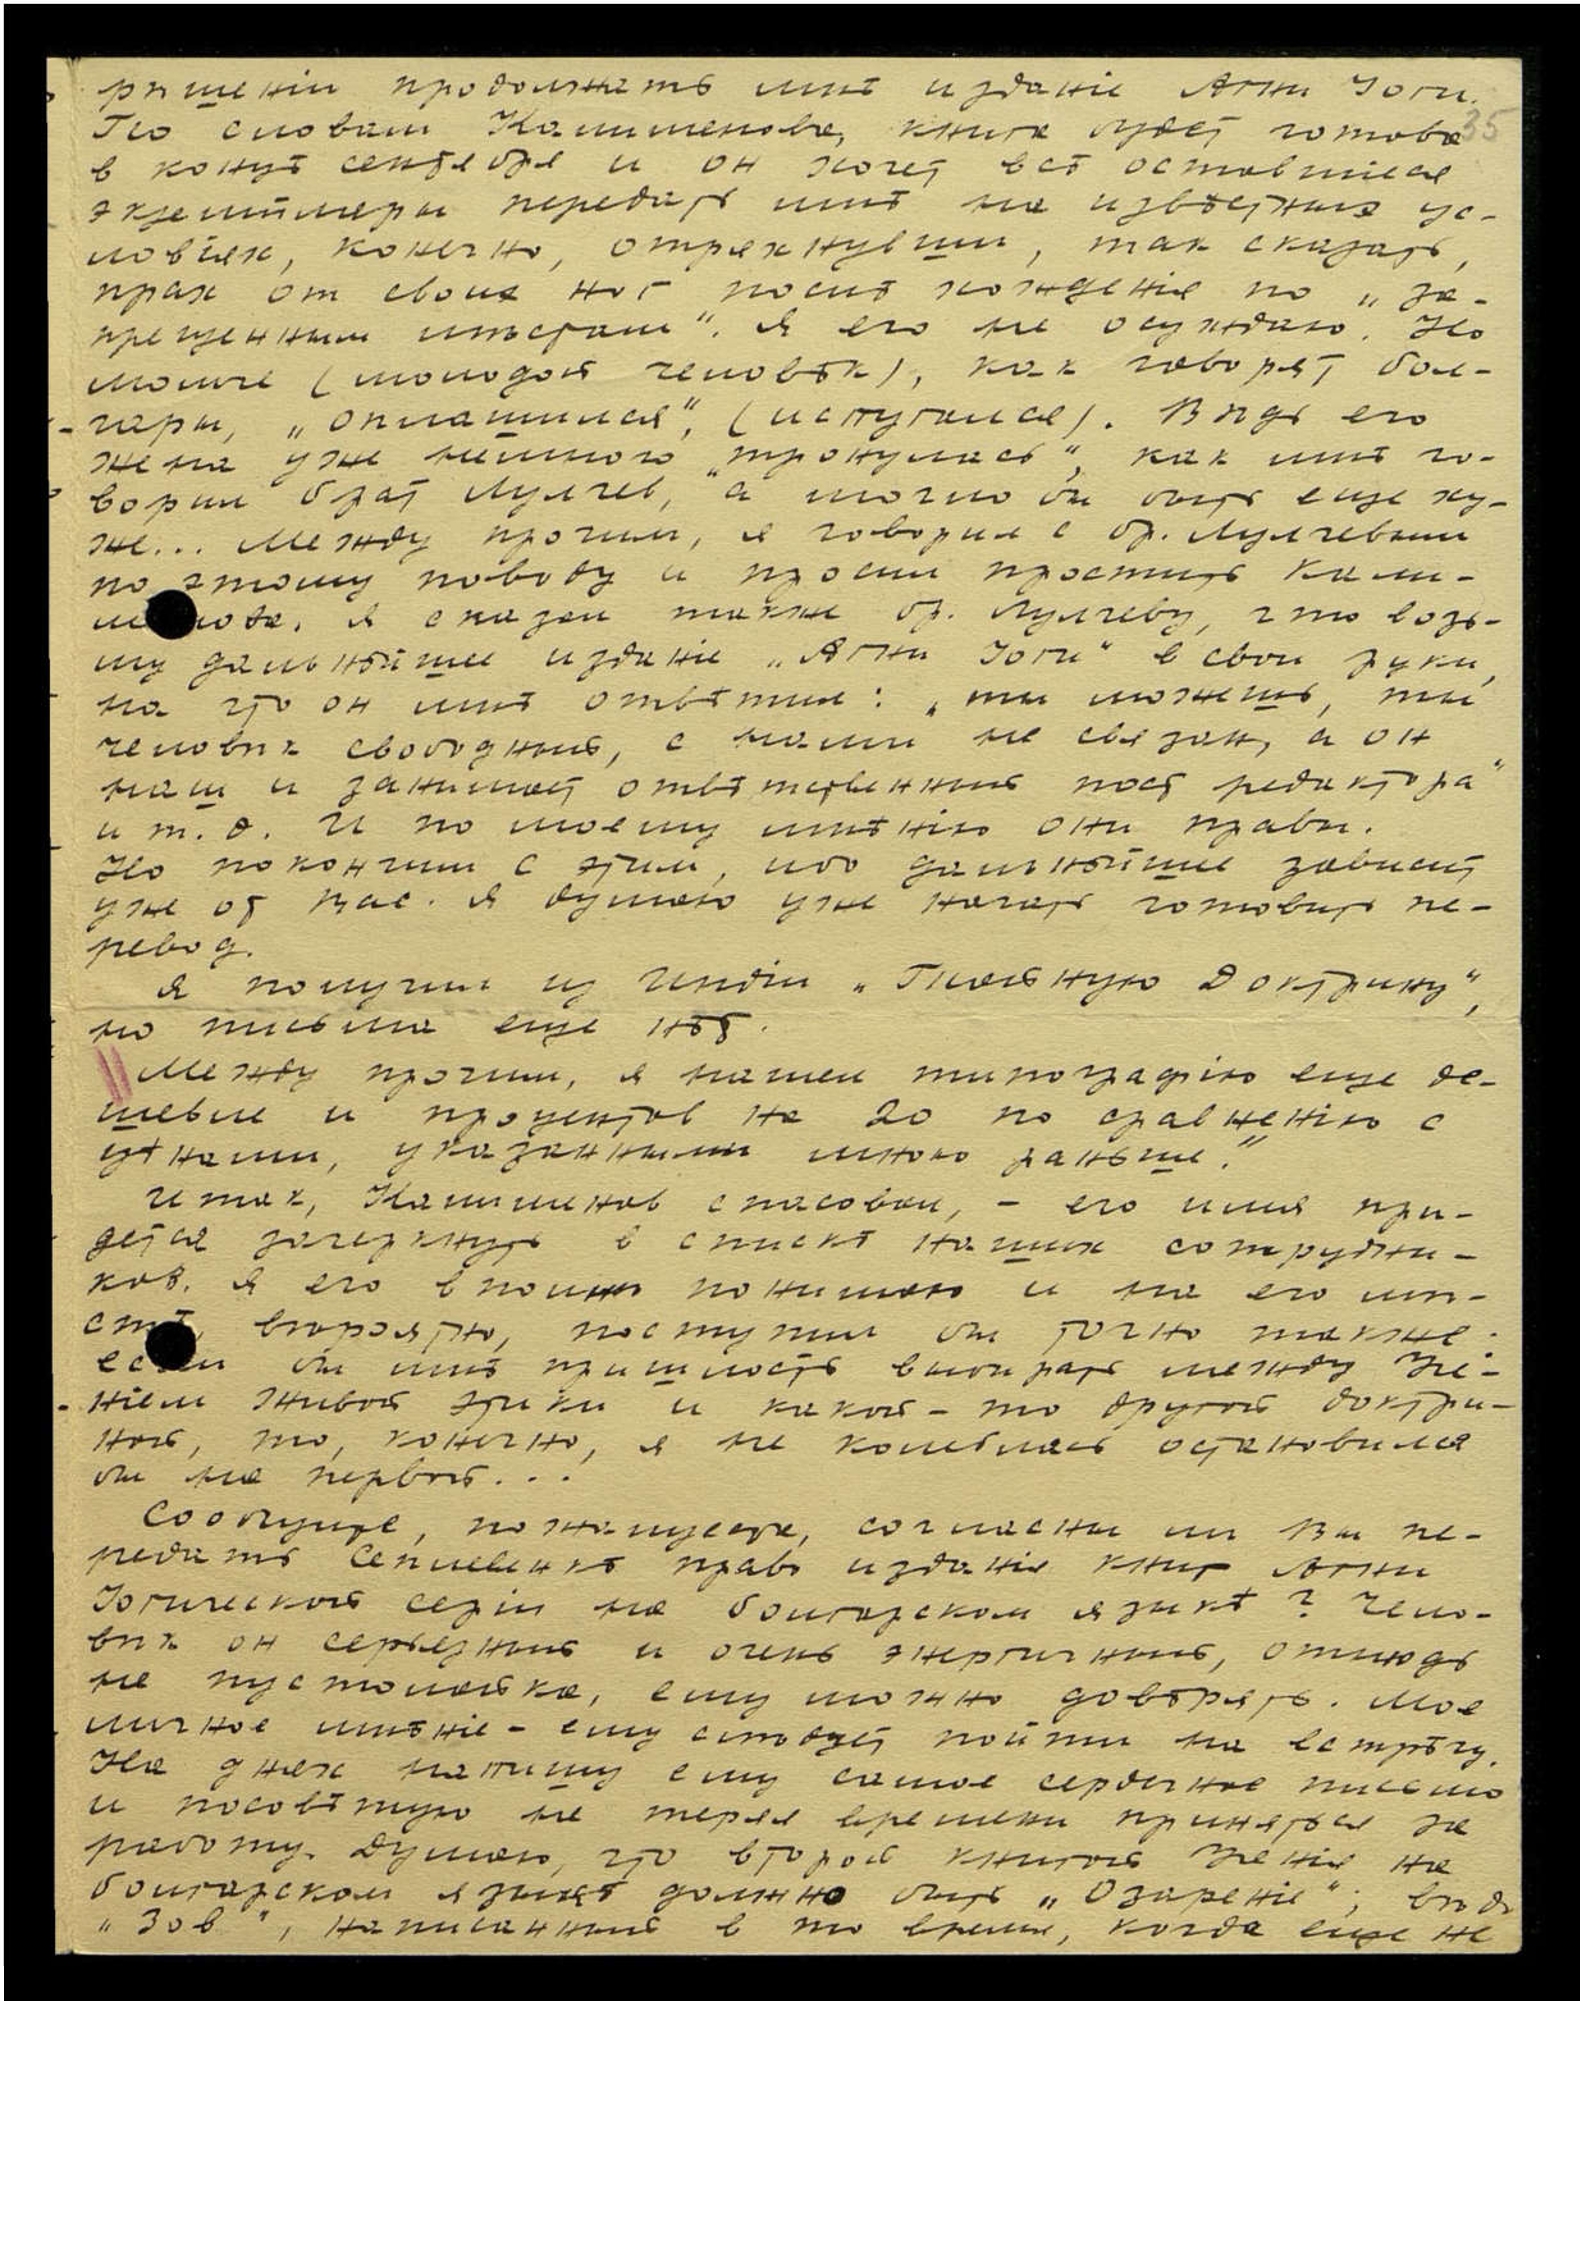 рѣшеніи продолжать мнѣ изданіе Агни Іоги.
35
По словам Калименова, книга будет готова
в концѣ сентября и он хочет всѣ оставшіеся
экземпляры передать мнѣ на извѣстных ус-
ловіях, конечно, отряхнувши, так сказать,
прах от своих ног послѣ хожденія по „за-
прещенным мѣстам“. Я его не осуждаю. Но
момче (молодой человѣк), как говорят бол-
гары, „оплашился“, (испугался). Вѣдь его
жена уже немного „тронулась“, как мнѣ го-
ворил брат Лулчев, а могло бы быть еще ху-
же... Между прочим, я говорил с бр. Лулчевым
по этому поводу и просил простить Кали-
менова. Я сказал также бр. Лулчеву, что возь-
му дальнѣйшее изданіе „Агни Іоги“ в свои руки,
на что он мнѣ отвѣтил: „ты можешь, ты
человѣк свободный, с нами не связан, а он
наш и занимает отвѣтственный пост редактора“
и т. д. И по моему мнѣнію они правы.
Но покончим с этим, ибо дальнѣйшее зависит
уже от нас. Я думаю уже начать готовить пе-
ревод.
Я получил из Индіи „Тайную Доктрину“,
но письма еще нѣт.
Между прочим, я нашел типографію еще де-
шевле и процентов на 20 по сравненію с
цѣнами, указанными мною раньше.“
Итак, Калименов спасовал, – его имя при-
дется зачеркнуть в спискѣ наших сотрудни-
ков. Я его вполнѣ понимаю и на его мѣ-
стѣ, вѣроятно, поступил бы точно также.
если бы мнѣ пришлось выбирать между Уче-
ніем Живой Этики и какой-то другой доктри-
ной, то, конечно, я не колеблясь остановился
бы на первой...
Сообщите, пожалуйста, согласны ли Вы пе-
редать право изданія книг Агни
Іогической серіи на болгарском языкѣ? Чело-
вѣк он серьезный и очень энергичный, отнюдь
не пустомеля, ему можно довѣрять. Мое
личное мнѣніе – ему слѣдует пойти на встрѣчу.
На днях напишу ему самое сердечное письмо
и посовѣтую не теряя времени приняться за
работу. Думаю, что второй книгой Ученія на
болгарском языкѣ должно быть „Озареніе“; вѣдь
„Зов“, написанный в то время, когда еще не